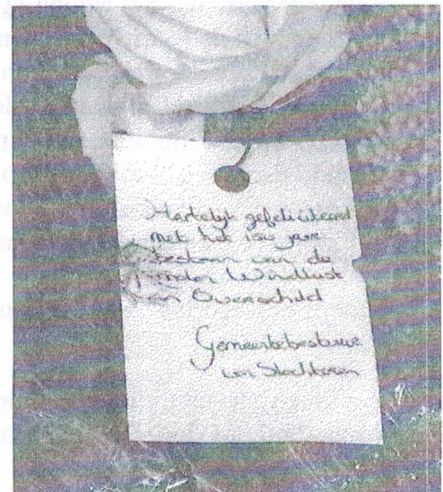 Hartelijk gefeliciteerd
met het 150 jarig
bestaan van de
molen Windlust
in Overschild
Gemeentebestuur
van Slochteren